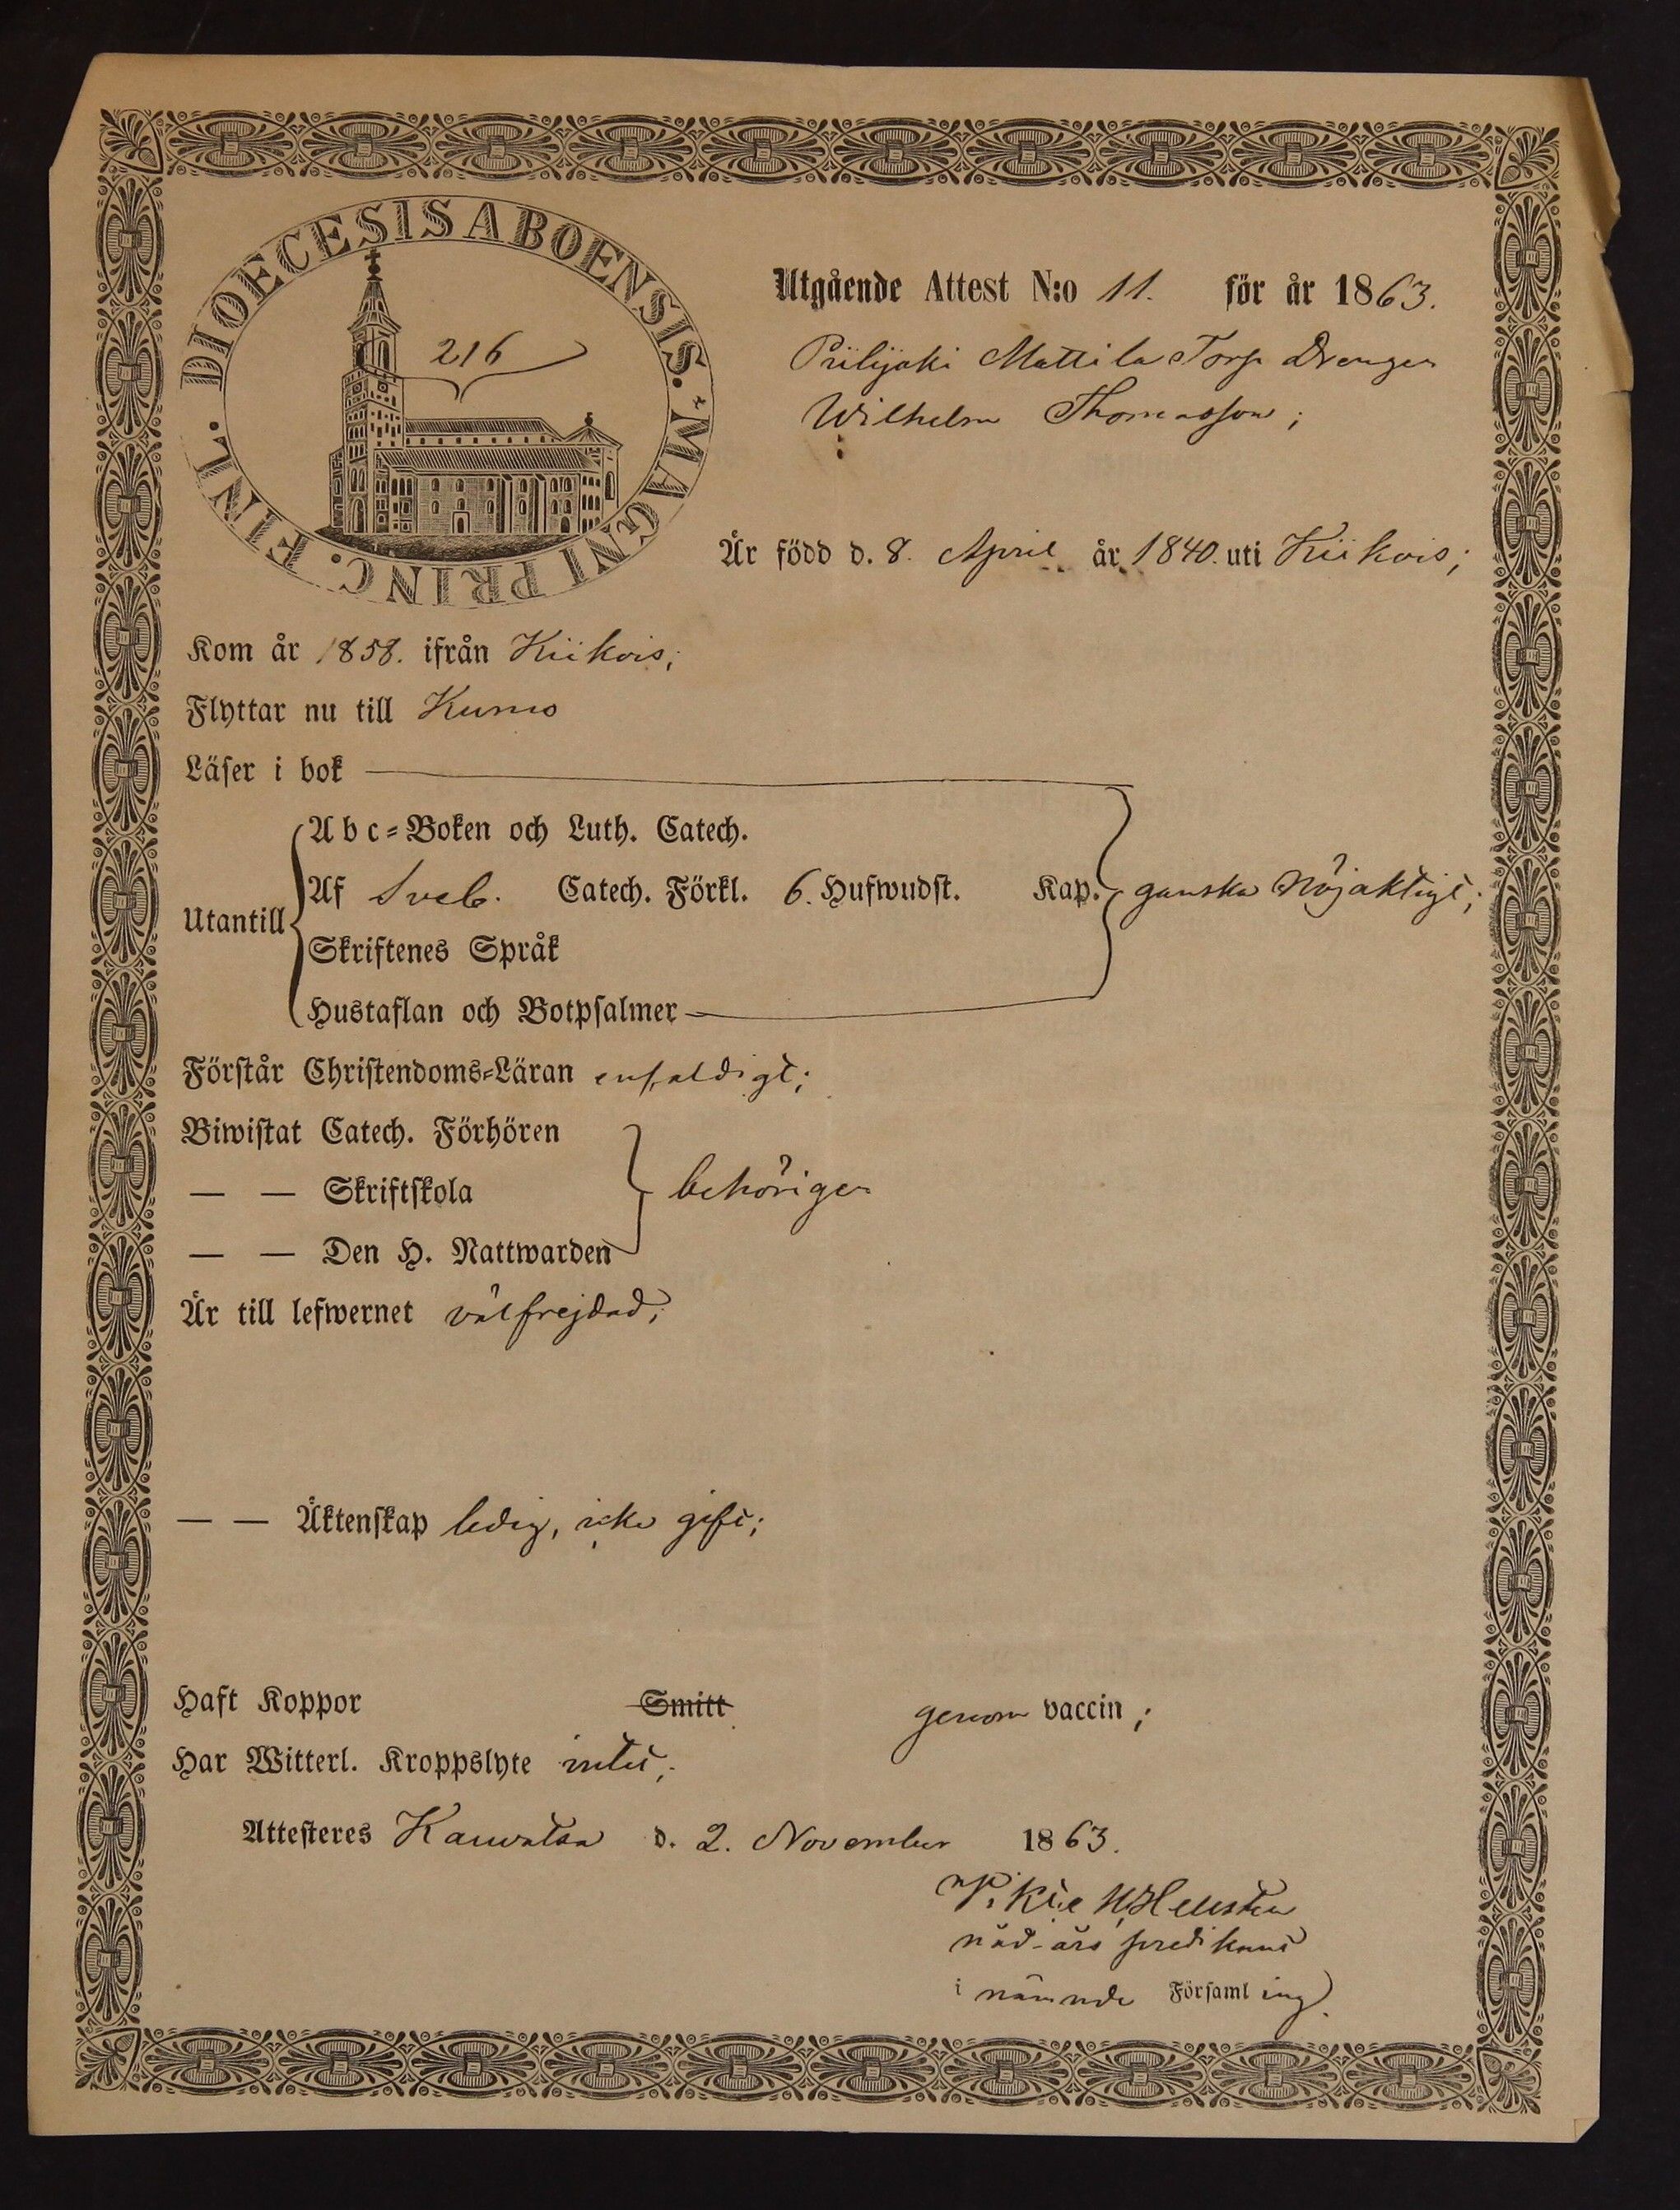 DIOECESIS ABOENSIS. MAGNI PRINC. FINL.
216
Utgående Attest N:o 11. för år 1863.
Piilijoki Mattila Torp Drengen
Wilhelm Thomasson;
Är född d. 8. April år 1840. uti Kiikois;
Kom år 1858. ifrån Kiikois;
Flyttar nu till Kumo
Läser i bok
Utantill
Abc-Boken och Luth. Catech.
Af Sveb. Catech. Förkl. 6. Hufwudst. Kap. ganska nöjaktigt;
Skriftenes Språk
Hustaflan och Botpsalmer
Förstår Christendoms-Läran enfaldigt;
Biwistat Catech. Förhören
— — Skriftskola behörigen
— — Den H. Nattwarden
Är till lefwernet välfrejdad;
— — Äktenskap ledig, icke gift;
Haft Koppor Smitt genom vaccin;
Har Witterl. Kroppslyte intet;
Attesteres Kauvatsa d. 2. November 1863.
Hellsten
nåd-års predikant
i nämnde Församling.